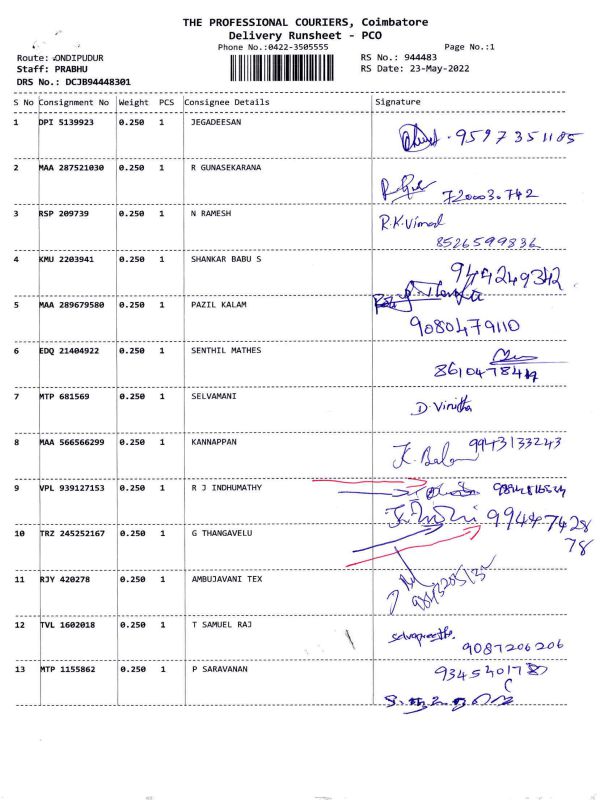 THE PROFESSIONAL COURIERS, Coimbatore
Delivery Runsheet - PCO
Phone No.:0422-3505555
Page No.:1
Route: ONDIPUDUR
RS No.: 944483
Staff: PRABHU
RS Date: 23-May-2022
DRS No.: DCJB94448301
S No Consignment No Weight PCS Consignee Details Signature
1 DPI 5139923 0.250 1 JEGADEESAN
9597351185
2 MAA 287521030 0.250 1 R GUNASEKARANA
720003.742
3 RSP 209739 0.250 1 N RAMESH
R.K.Vimal
8526599836
4 KMU 2203941 0.250 1 SHANKAR BABU S
944249342
5 MAA 289679580 0.250 1 PAZIL KALAM
9080479110
6 EDQ 21404922 0.250 1 SENTHIL MATHES
7 MTP 681569 0.250 1 SELVAMANI
D.Vinitha
8 MAA 566566299 0.250 1 KANNAPPAN
9943133243
9 VPL 939127153 0.250 1 R J INDHUMATHY
10 TRZ 245252167 0.250 1 G THANGAVELU
99447428
78
11 RJY 420278 0.250 1 AMBUJAVANI TEX
12 TVL 1602018 0.250 1 T SAMUEL RAJ
9087206206
13 MTP 1155862 0.250 1 P SARAVANAN